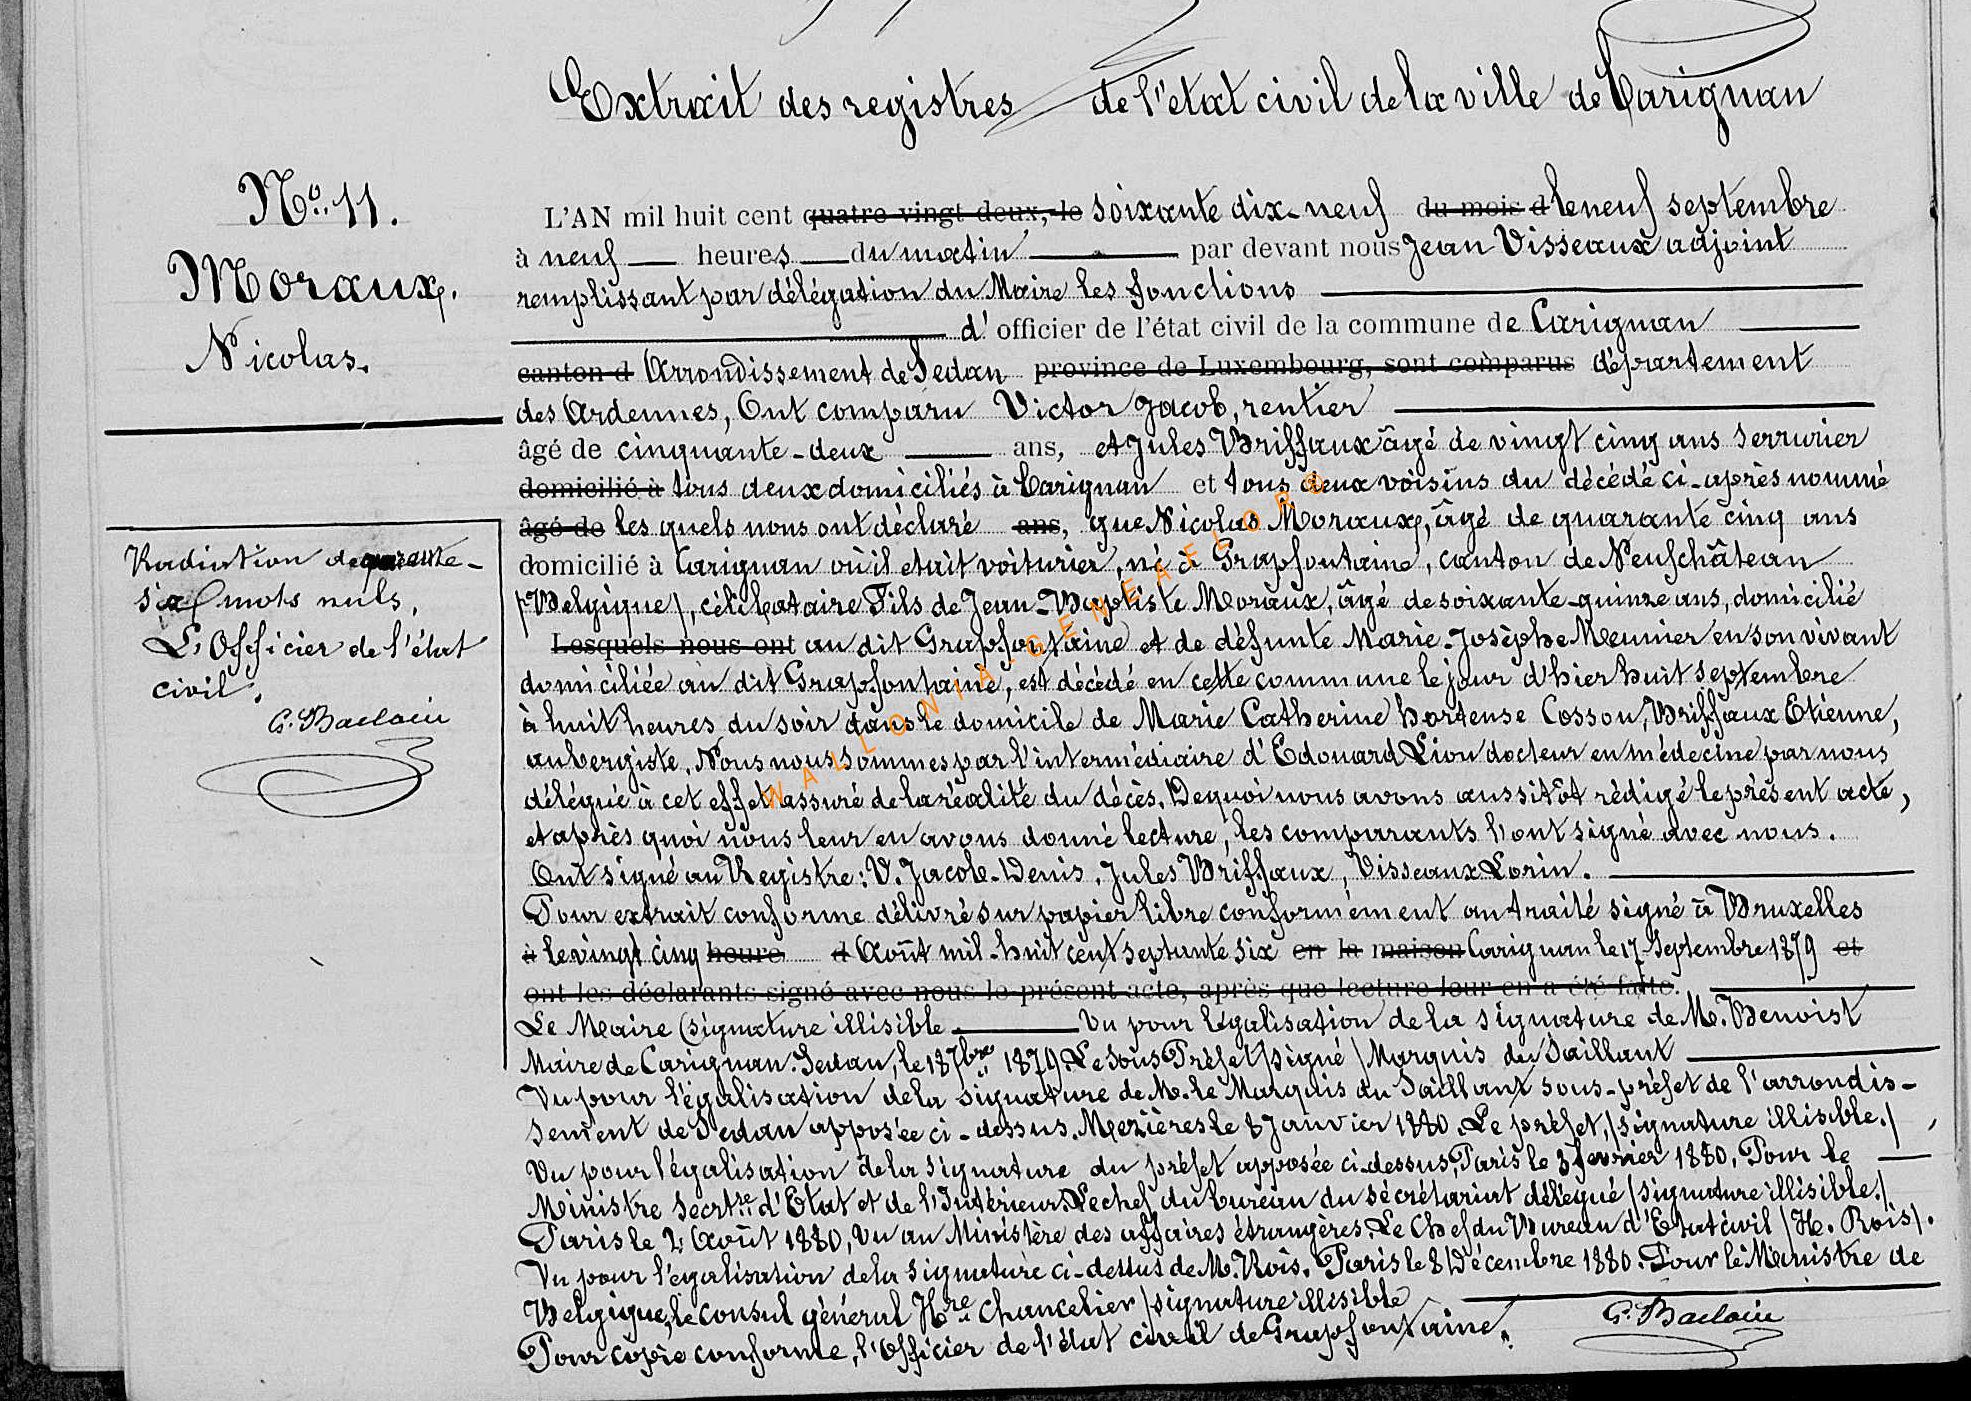 Extrait des registres de l'état civil de la ville de Carignan
No. 11.
Moraux,
Nicolas.
L'AN mil huit cent quatre-vingt-deux, le soixante dix-neuf du mois d le neuf septembre
à neuf heures du matin par devant nous Jean Visseaux adjoint
remplissant par délégation du Maire les fonctions
d' officier de l'état civil de la commune de Carignan
canton d Arrondissement de Sedan province de Luxembourg, sont comparus département
des Ardennes, Ont comparu Victor Jacob, rentier
âgé de cinquante-deux ans, et Jules Briffaux âgé de vingt cinq ans serrurier
domicilié à tous deux domiciliés à Carignan et tous deux voisins du décédé ci-après nommé
âgé de les quels nous ont déclaré ans, que Nicolas Moraux, âgé de quarante cinq ans
domicilié à Carignan où il etait voiturier, né à Grapfontaine, canton de Neufchâteau
(Belgique), célibataire Fils de Jean-Baptiste Moraux, âgé de soixante-quinze ans, domicilié
Lesquels nous ont au dit Grapfontaine et de défunte Marie-Josèphe Meunier en son vivant
domiciliée au dit Grapfontaine, est décédé en cette commune le jour d'hier huit septembre
à huit heures du soir dans le domicile de Marie Catherine Hortense Cosson, Briffaux Etienne,
aubergiste. Nous nous sommes par l'intermédiaire d'Edouard Lion docteur en médecine par nous
délégué à cet effet assuré de la réalité du décès. De quoi nous avons aussitôt rédigé le présent acte,
et après quoi nous leur en avons donné lecture, les comparants l'ont signé avec nous.
Ont signé au Registre: V. Jacob-Denis, Jules Briffaux, Visseaux Lorin.
Pour extrait conforme délivré sur papier libre conformément au traité signé à Bruxelles
à le vingt cinq heure d Août mil-huit cent septante six en la maison Carignan le 17 Septembre 1879 et
ont les déclarants signé avec nous le présent acte, après que lecture leur en a été faite.
Le Maire (signature illisible Vu pour légalisation de la signature de M. Benoist
Maire de Carignan. Sedan, le 18 7bre 1879. Le Sous Préfet (signé) Marquis du Saillant
Vu pour légalisation de la signature de M. le Marquis du Saillant sous-préfet de l'arrondis-
sement de Sedan apposée ci-dessus. Mezières le 8 Janvier 1880. Le préfet, (signature illisible.)
Vu pour légalisation de la signature du préfet apposée ci-dessus, Paris le 3 février 1880, Pour le
Ministre Secrtre d'Etat et de l'Intérieur Le chef du bureau du sécrétariat délégué (signature illisible.)
Paris le 2 Août 1880, Vu au Ministère des affaires étrangères. Le Chef du Bureau d'Etat civil (H. Rois).
Vu pour légalisation de la signature ci-dessus de M. Rois. Paris le 8 Décembre 1880. Pour le Ministre de
Belgique, le consul général Hre Chancelier (signature illisible
Pour copie conforme, l'Officier de l'état civil de Grapfontaine.
G. Baclain
Radiation de quarante-
six mots nuls.
L'Officier de l'état
civil,
G. Baclain